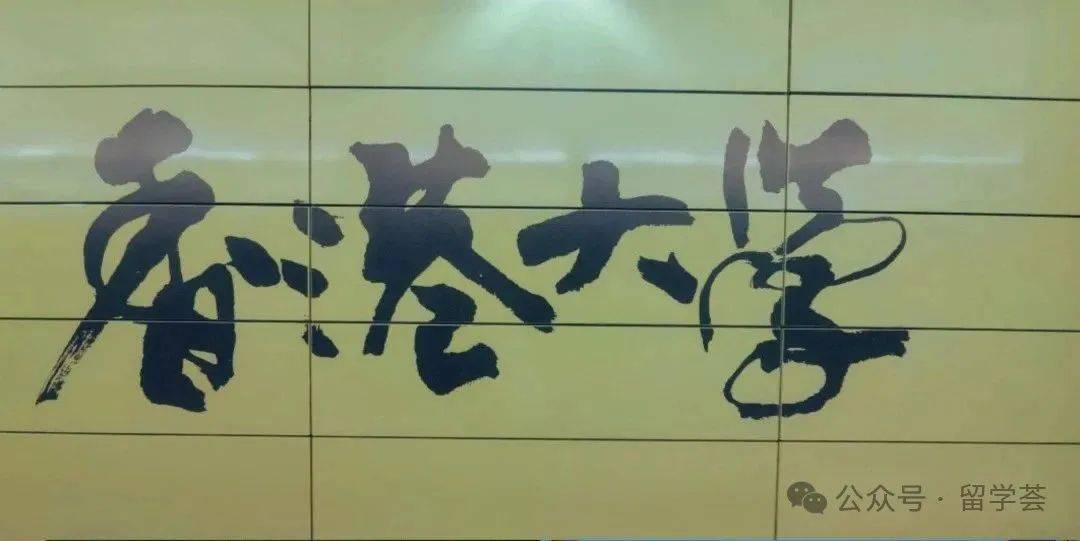 香港大学
公众号 · 留学荟